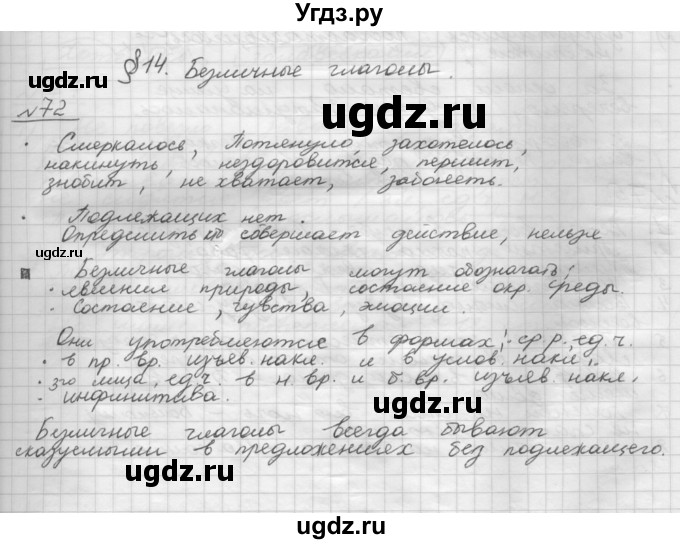 Угдз.ру
§14. Безличные глаголы.
№72
· Смеркалось, Потянуло, захотелось,
накинуть, нездоровится, першит,
знобит, не хватает, заболеть.
· Подлежащих нет.
Определить кто совершает действие, нельзя
Безличные глаголы могут обозначать:
· явления природы, состояние окр. среды.
· Состояние, чувства, эмоции.
Они употребляются в формах: · ср.р., ед.ч.
· в пр. вр. изъяв. накл. и в услов. накл.
· 3го лица, ед.ч. в н. вр. и б. вр. изъяв. накл.
· инфинитива.
Безличные глаголы всегда бывают
сказуемыми в предложениях без подлежащего.
ugdz.ru
ugdz.ru
ugdz.ru
ugdz.ru
ugdz.ru
ugdz.ru
ugdz.ru
ugdz.ru
ugdz.ru
ugdz.ru
ugdz.ru
ugdz.ru
ugdz.ru